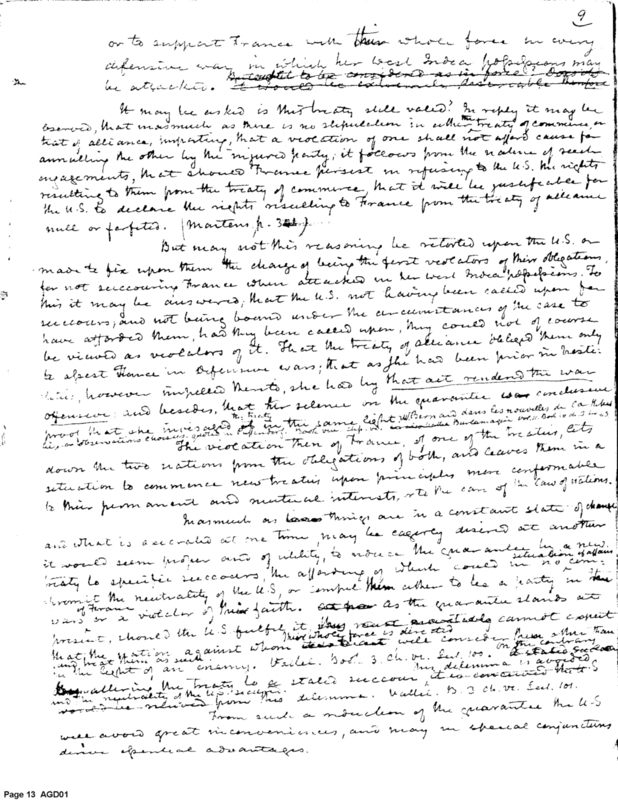 9
or to support France with their whole force in every
defensive war in which her West India possessions may
be attacked.
It may be asked is this treaty still valid? In reply it may be
observed, that inasmuch as there is no stipulation in either the treaty of commerce, or
that of alliance, importing, that a violation of one shall not afford cause for
annulling the other by the injured party; it follows from the nature of such
engagements, that should France persist in refusing to the U.S. the rights
resulting to them from the treaty of commerce, that it will be justifiable for
the U.S. to declare the rights resulting to France from the treaty of alliance
null or forfeited. (Martens p.
But may not this reasoning be retorted upon the U.S. or
made to fix upon them the charge of being the first violators of their obligations,
for not succouring France when attacked in her West India possessions. To
this it may be answered, that the U.S. not having been called upon for
succours, and not being bound under the circumstances of the case to
have afforded them, had they been called upon, they could not of course
be viewed as violators of it. That the treaty of alliance obliged them only
to assist France in defensive wars; that as she had been prior in hostili-
ties, however impelled thereto, she had by that act rendered the war
offensive: and besides, that her silence on the guarantee was conclusive
proof that she envisaged the treaty in the same light
The violation then of France, of one of the treaties, lets
down the two nations from the obligations of both, and leaves them in a
situation to commence new treaties upon principles more conformable
to their permanent and mutual interests, & to the can of the law of nations.
Inasmuch as things are in a constant state of change
and what is accorded at one time, may be eagerly desired at another
it would seem proper and of utility, to reduce the guarantee by a new
treaty to specific succours, the affording of which could in no situation of affairs com-
promit the neutrality of the U.S, or compel them either to be a party in the
wars of France or a violator of their faith. as the guarantee stands at
present, should the U.S fulfil it, they cannot expect
that, the nation against whom their whole force is directed will consider them other than
and treat them as such
in the light of an enemy. Vattel. Boo. 3. Ch. VI. Sect. 101. on the contrary
by altering the treaty to a stated succour the dilemma is avoided
and the neutrality of the U.S. Vattel. B. 3 Ch. VI. Sect. 101.
From such a reduction of the guarantee the U.S
will avoid great inconveniences, and may in special conjunctures
derive essential advantages.
Page 13 AGD01